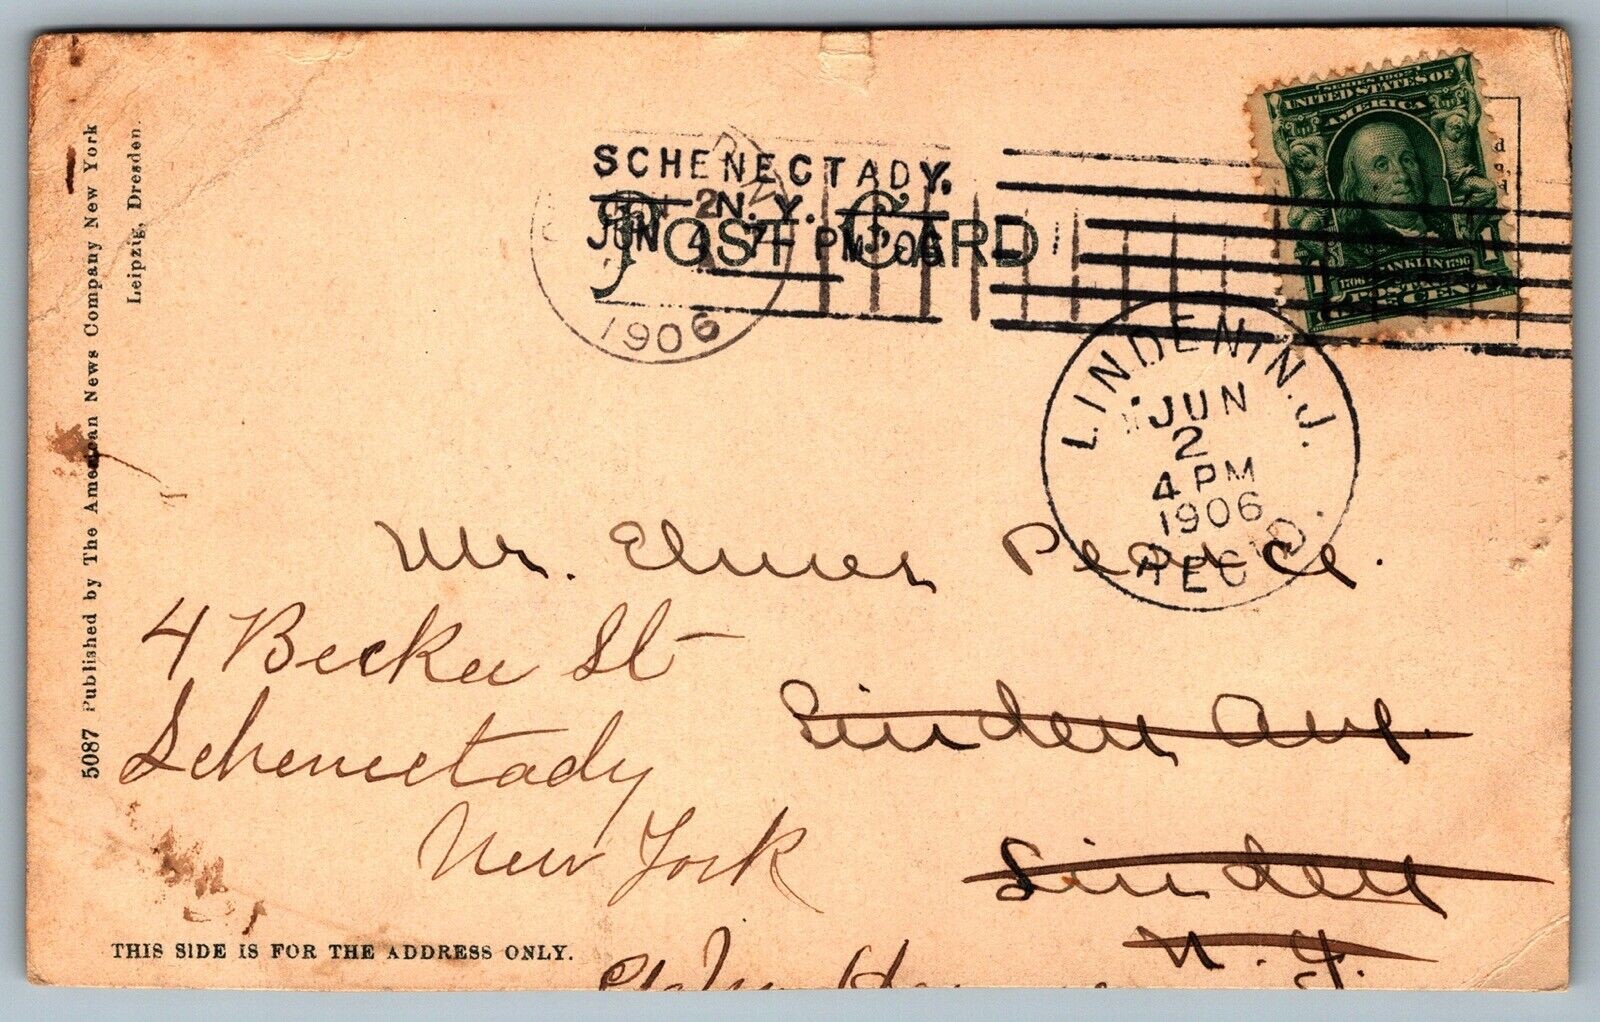 SCHENECTADY,
N.Y.
JUN 4 7- PM '06
POST CARD
1906
SERIES 1902
UNITED STATES OF
AMERICA
1706 FRANKLIN 1790
POSTAGE
ONE CENT
LINDEN, N.J.
JUN
2
4 PM
1906
REC'D.
Mr. Elmer Pearce.
4 Becker St
Schenectady
New York
Linden Ave.
Linden
N. J.
5087 Published by The American News Company New York
Leipzig, Dresden.
THIS SIDE IS FOR THE ADDRESS ONLY.